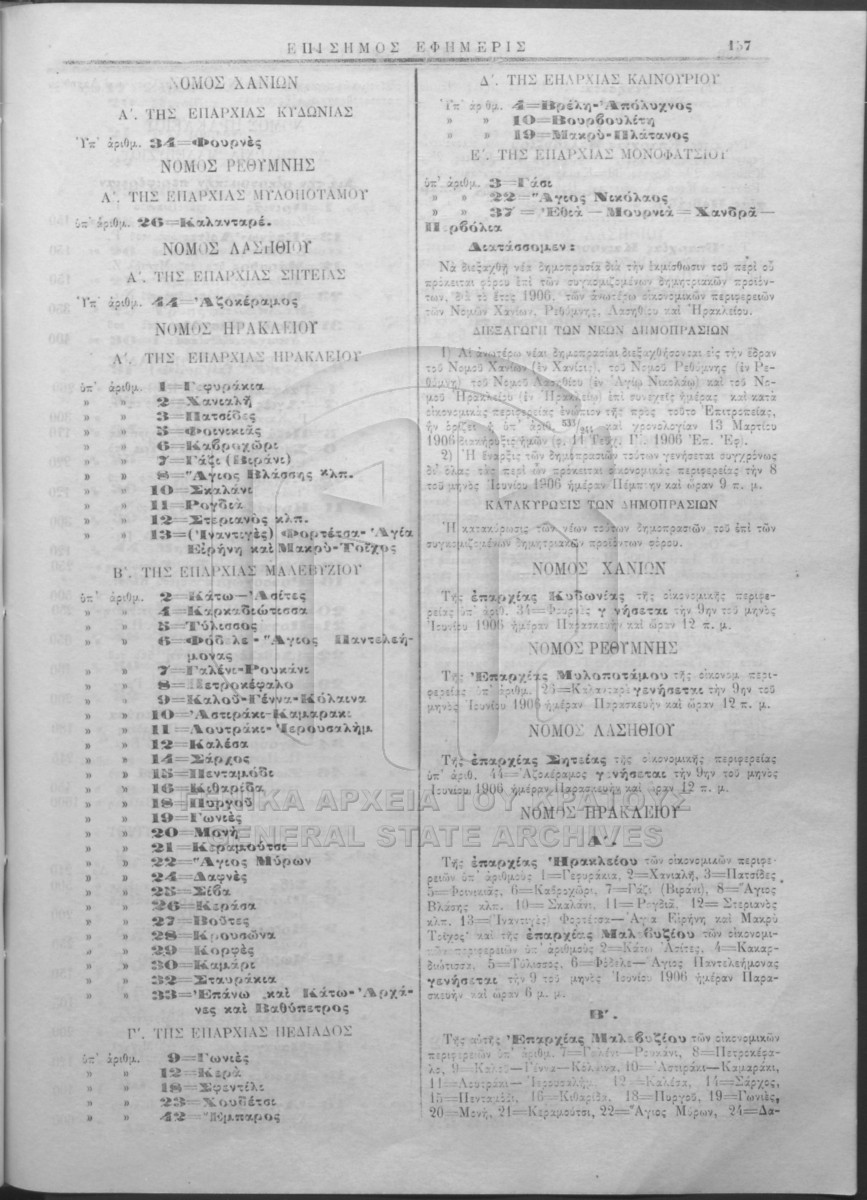 ΕΠΙΣΗΜΟΣ ΕΦΗΜΕΡΙΣ 157
ΝΟΜΟΣ ΧΑΝΙΩΝ
Α΄. ΤΗΣ ΕΠΑΡΧΙΑΣ ΚΥΔΩΝΙΑΣ
Ὑπ' ἀριθμ. 34=Φουρνὲς
ΝΟΜΟΣ ΡΕΘΥΜΝΗΣ
Α΄. ΤΗΣ ΕΠΑΡΧΙΑΣ ΜΥΛΟΠΟΤΑΜΟΥ
ὑπ' ἀριθμ. 26=Καλανταρέ.
ΝΟΜΟΣ ΛΑΣΗΘΙΟΥ
Α΄. ΤΗΣ ΕΠΑΡΧΙΑΣ ΣΗΤΕΙΑΣ
Ὑπ' ἀριθμ. 44=Ἀζοκέραμος
ΝΟΜΟΣ ΗΡΑΚΛΕΙΟΥ
Α΄. ΤΗΣ ΕΠΑΡΧΙΑΣ ΗΡΑΚΛΕΙΟΥ
ὑπ' ἀριθμ. 1=Γεφυράκια
» » 2=Χανιαλῆ
» » 3=Πατσίδες
» » 5=Φοινικιάς
» » 6=Καβροχῶρι
» » 7=Γάζι (Βιράνι)
» » 8=Ἅγιος Βλάσσης κλπ.
» » 10=Σκαλάνι
» » 11=Ρογδιὰ
» » 12=Στεριανὸς κλπ.
» » 13=(Ἰναντιγὲς) Φορτέτσα-Ἁγία
Εἰρήνη καὶ Μακρὺ-Τοῖχος
Β΄. ΤΗΣ ΕΠΑΡΧΙΑΣ ΜΑΛΕΒΥΖΙΟΥ
ὑπ' ἀριθμ. 2=Κάτω-Ἀσίτες
» » 4=Καρκαδιώτισσα
» » 5=Τύλισσος
» » 6=Φόδελε-Ἅγιος Παντελεή-
μονας
» » 7=Γαλένι-Ρουκάνι
» » 8=Πετροκέφαλο
» » 9=Καλοῦ-Γέννα-Κόλαινα
» » 10=Ἀστιράκι-Καμαράκι
» » 11=Λουτράκι-Ἱερουσαλήμ
» » 12=Καλέσα
» » 14=Σάρχος
» » 15=Πενταμόδι
» » 16=Κιθαρίδα
» » 18=Πυργοῦ
» » 19=Γωνιὲς
» » 20=Μονὴ
» » 21=Κεραμούτσι
» » 22=Ἅγιος Μύρων
» » 24=Δαφνὲς
» » 25=Σίβα
» » 26=Κεράσα
» » 27=Βοῦτες
» » 28=Κρουσῶνα
» » 29=Κορφὲς
» » 30=Καμάρι
» » 32=Σταυράκια
» » 33=Ἐπάνω καὶ Κάτω-Ἀρχά-
νες καὶ Βαθύπετρος
Γ΄. ΤΗΣ ΕΠΑΡΧΙΑΣ ΠΕΔΙΑΔΟΣ
ὑπ' ἀριθμ. 9=Γωνιὲς
» » 12=Κερὰ
» » 18=Σφεντύλι
» » 23=Χουδέτσι
» » 42=Ἔμπαρος
Δ΄. ΤΗΣ ΕΠΑΡΧΙΑΣ ΚΑΙΝΟΥΡΙΟΥ
Ὑπ' ἀριθμ. 4=Βρέλη-Ἀπόλυχνος
» » 10=Βουρβουλίτη
» » 19=Μακρὺ-Πλάτανος
Ε΄. ΤΗΣ ΕΠΑΡΧΙΑΣ ΜΟΝΟΦΑΤΣΙΟΥ
ὑπ' ἀριθμ. 3=Γάσι
» » 22=Ἅγιος Νικόλαος
» » 37=Ἐθιὰ—Μουρνιὰ=Χανδρᾶ—
Περβόλια
Διατάσσομεν:
Νὰ διεξαχθῇ νέα δημοπρασία διὰ τὴν ἐκμίσθωσιν τοῦ περὶ οὗ
πρόκειται φόρου ἐπὶ τῶν συγκομιζομένων δημητριακῶν προϊόν-
των, διὰ τὸ ἔτος 1906, τῶν ἀνωτέρω οἰκονομικῶν περιφερειῶν
τῶν Νομῶν Χανίων, Ρεθύμνης, Λασηθίου καὶ Ἡρακλείου.
ΔΙΕΞΑΓΩΓΗ ΤΩΝ ΝΕΩΝ ΔΗΜΟΠΡΑΣΙΩΝ
1) Αἱ ἀνωτέρω νέαι δημοπρασίαι διεξαχθήσονται εἰς τὴν ἕδραν
τοῦ Νομοῦ Χανίων (ἐν Χανίοις), τοῦ Νομοῦ Ρεθύμνης (ἐν Ρε-
θύμνῃ) τοῦ Νομοῦ Λασηθίου (ἐν Ἁγίῳ Νικολάῳ) καὶ τοῦ Νο-
μοῦ Ἡρακλείου (ἐν Ἡρακλείῳ) ἐπὶ συνεχεῖς ἡμέρας καὶ κατὰ
οἰκονομικὰς περιφερείας ἐνώπιον τῆς πρὸς τοῦτο Ἐπιτροπείας,
ἣν ὁρίζει ἡ ὑπ' ἀριθ. καὶ χρονολογίαν 13 Μαρτίου
1906 διακήρυξις ἡμῶν (φ. 11 Τεῦχ. Γ΄. 1906 Ἐπ. Ἐφ).
2) Ἡ ἔναρξις τῶν δημοπρασιῶν τούτων γενήσεται συγχρόνως
δι' ὅλας τὰς περὶ ὧν πρόκειται οἰκονομικὰς περιφερείας τὴν 8
τοῦ μηνὸς Ἰουνίου 1906 ἡμέραν Πέμπτην καὶ ὥραν 9 π. μ.
ΚΑΤΑΚΥΡΩΣΙΣ ΤΩΝ ΔΗΜΟΠΡΑΣΙΩΝ
Ἡ κατακύρωσις τῶν νέων τούτων δημοπρασιῶν τοῦ ἐπὶ τῶν
συγκομιζομένων δημητριακῶν προϊόντων φόρου.
ΝΟΜΟΣ ΧΑΝΙΩΝ
Τῆς ἐπαρχίας Κυδωνίας τῆς οἰκονομικῆς περιφε-
ρείας ὑπ' ἀριθ. 34=Φουρνὲς γενήσεται τὴν 9ην τοῦ μηνὸς
Ἰουνίου 1906 ἡμέραν Παρασκευὴν καὶ ὥραν 12 π. μ.
ΝΟΜΟΣ ΡΕΘΥΜΝΗΣ
Τῆς Ἐπαρχίας Μυλοποτάμου τῆς οἰκονομ περι-
φερείας ὑπ' ἀριθμ. 26=Καλανταρὲ γενήσεται τὴν 9ην τοῦ
μηνὸς Ἰουνίου 1906 ἡμέραν Παρασκευὴν καὶ ὥραν 12 π. μ.
ΝΟΜΟΣ ΛΑΣΗΘΙΟΥ
Τῆς ἐπαρχίας Σητείας τῆς οἰκονομικῆς περιφερείας
ὑπ' ἀριθ. 44=Ἀζοκέραμος γενήσεται τὴν 9ην τοῦ μηνὸς
Ἰουνίου 1906 ἡμέραν Παρασκευὴν καὶ ὥραν 12 π. μ.
ΝΟΜΟΣ ΗΡΑΚΛΕΙΟΥ
Α΄.
Τῆς ἐπαρχίας Ἡρακλείου τῶν οἰκονομικῶν περιφε-
ρειῶν ὑπ' ἀριθμοὺς 1=Γεφυράκια, 2=Χανιαλῆ, 3=Πατσίδες
5=Φοινικιάς, 6=Καβροχῶρι, 7=Γάζι (Βιράνι), 8=Ἅγιος
Βλάσης κλπ. 10=Σκαλάνι, 11=Ρογδιᾶ, 12=Στεριανὸς
κλπ. 13=(Ἰναντιγὲς) Φορτέτσα—Ἁγία Εἰρήνη καὶ Μακρὺ
Τοῖχος καὶ τῆς ἐπαρχίας Μαλεβυζίου τῶν οἰκονομι-
κῶν περιφερειῶν ὑπ' ἀριθμοὺς 2=Κάτω Ἀσίτες, 4=Κακαρ-
διώτισσα, 5=Τύλισσος, 6=Φόδελε—Ἅγιος Παντελεήμονας
γενήσεται τὴν 9 τοῦ μηνὸς Ἰουνίου 1906 ἡμέραν Παρα-
σκευὴν καὶ ὥραν 6 μ. μ.
Β΄.
Τῆς αὐτῆς Ἐπαρχίας Μαλεβυζίου τῶν οἰκονομικῶν
περιφερειῶν ὑπ' ἀριθμ. 7=Γαλένι—Ρουκάνι, 8=Πετροκέφα-
λο, 9=Καλοῦ—Γέννα—Κόλαινα, 10=Ἀστιράκι—Καμαράκι,
11=Λουτράκι—Ἱερουσαλήμ, 12=Καλέσα, 14=Σάρχος,
15=Πενταμόδι, 16=Κιθαρίδα, 18=Πυργοῦ, 19=Γωνιὲς,
20=Μονή, 21=Κεραμούτσι, 22=Ἅγιος Μύρων, 24=Δα-
ΓΕΝΙΚΑ ΑΡΧΕΙΑ ΤΟΥ ΚΡΑΤΟΥΣ
GENERAL STATE ARCHIVES